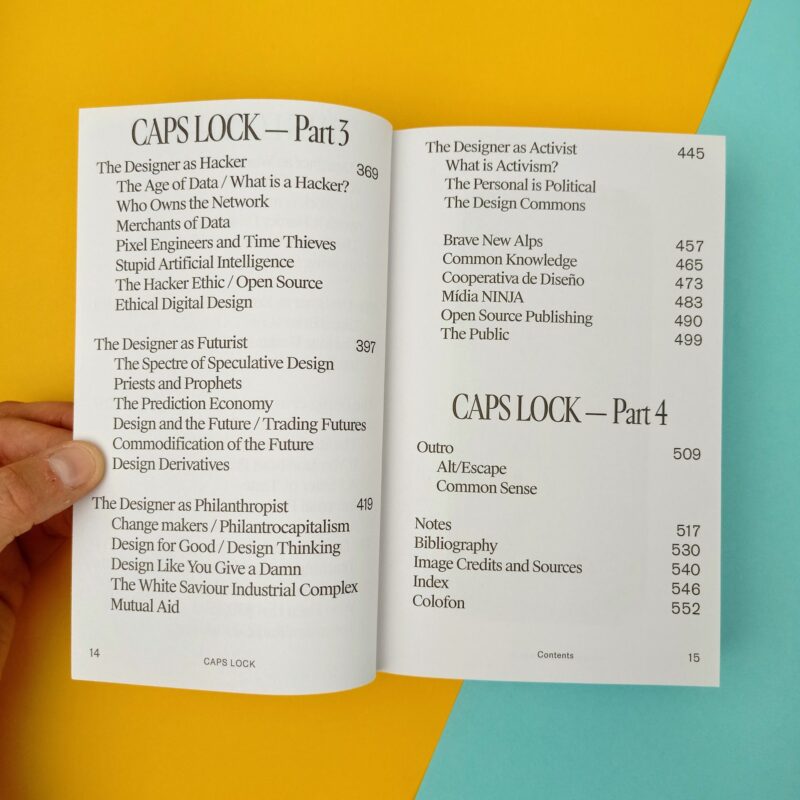 CAPS LOCK — Part 3
The Designer as Hacker 369
The Age of Data / What is a Hacker?
Who Owns the Network
Merchants of Data
Pixel Engineers and Time Thieves
Stupid Artificial Intelligence
The Hacker Ethic / Open Source
Ethical Digital Design
The Designer as Futurist 397
The Spectre of Speculative Design
Priests and Prophets
The Prediction Economy
Design and the Future / Trading Futures
Commodification of the Future
Design Derivatives
The Designer as Philanthropist 419
Change makers / Philantrocapitalism
Design for Good / Design Thinking
Design Like You Give a Damn
The White Saviour Industrial Complex
Mutual Aid
14 CAPS LOCK
The Designer as Activist 445
What is Activism?
The Personal is Political
The Design Commons
Brave New Alps 457
Common Knowledge 465
Cooperativa de Diseño 473
Mídia NINJA 483
Open Source Publishing 490
The Public 499
CAPS LOCK — Part 4
Outro 509
Alt/Escape
Common Sense
Notes 517
Bibliography 530
Image Credits and Sources 540
Index 546
Colofon 552
Contents 15